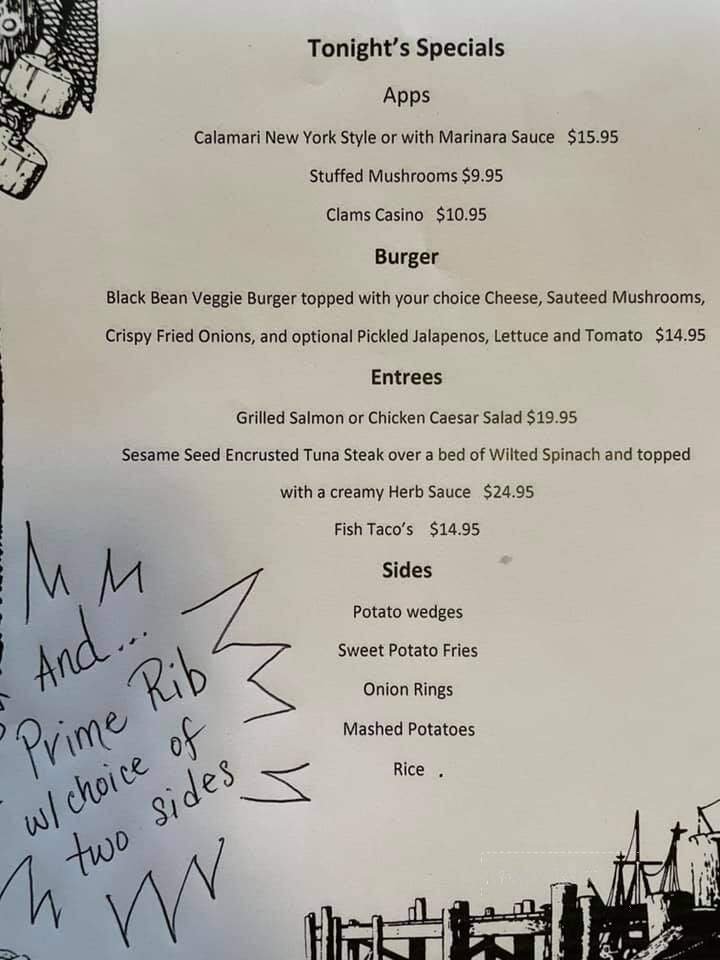 Tonight's Specials
Apps
Calamari New York Style or with Marinara Sauce $15.95
Stuffed Mushrooms $9.95
Clams Casino $10.95
Burger
Black Bean Veggie Burger topped with your choice Cheese, Sauteed Mushrooms,
Crispy Fried Onions, and optional Pickled Jalapenos, Lettuce and Tomato $14.95
Entrees
Grilled Salmon or Chicken Caesar Salad $19.95
Sesame Seed Encrusted Tuna Steak over a bed of Wilted Spinach and topped
with a creamy Herb Sauce $24.95
Fish Taco's $14.95
Sides
Potato wedges
Sweet Potato Fries
Onion Rings
Mashed Potatoes
Rice .
And...
Prime Rib
w/choice of
two sides